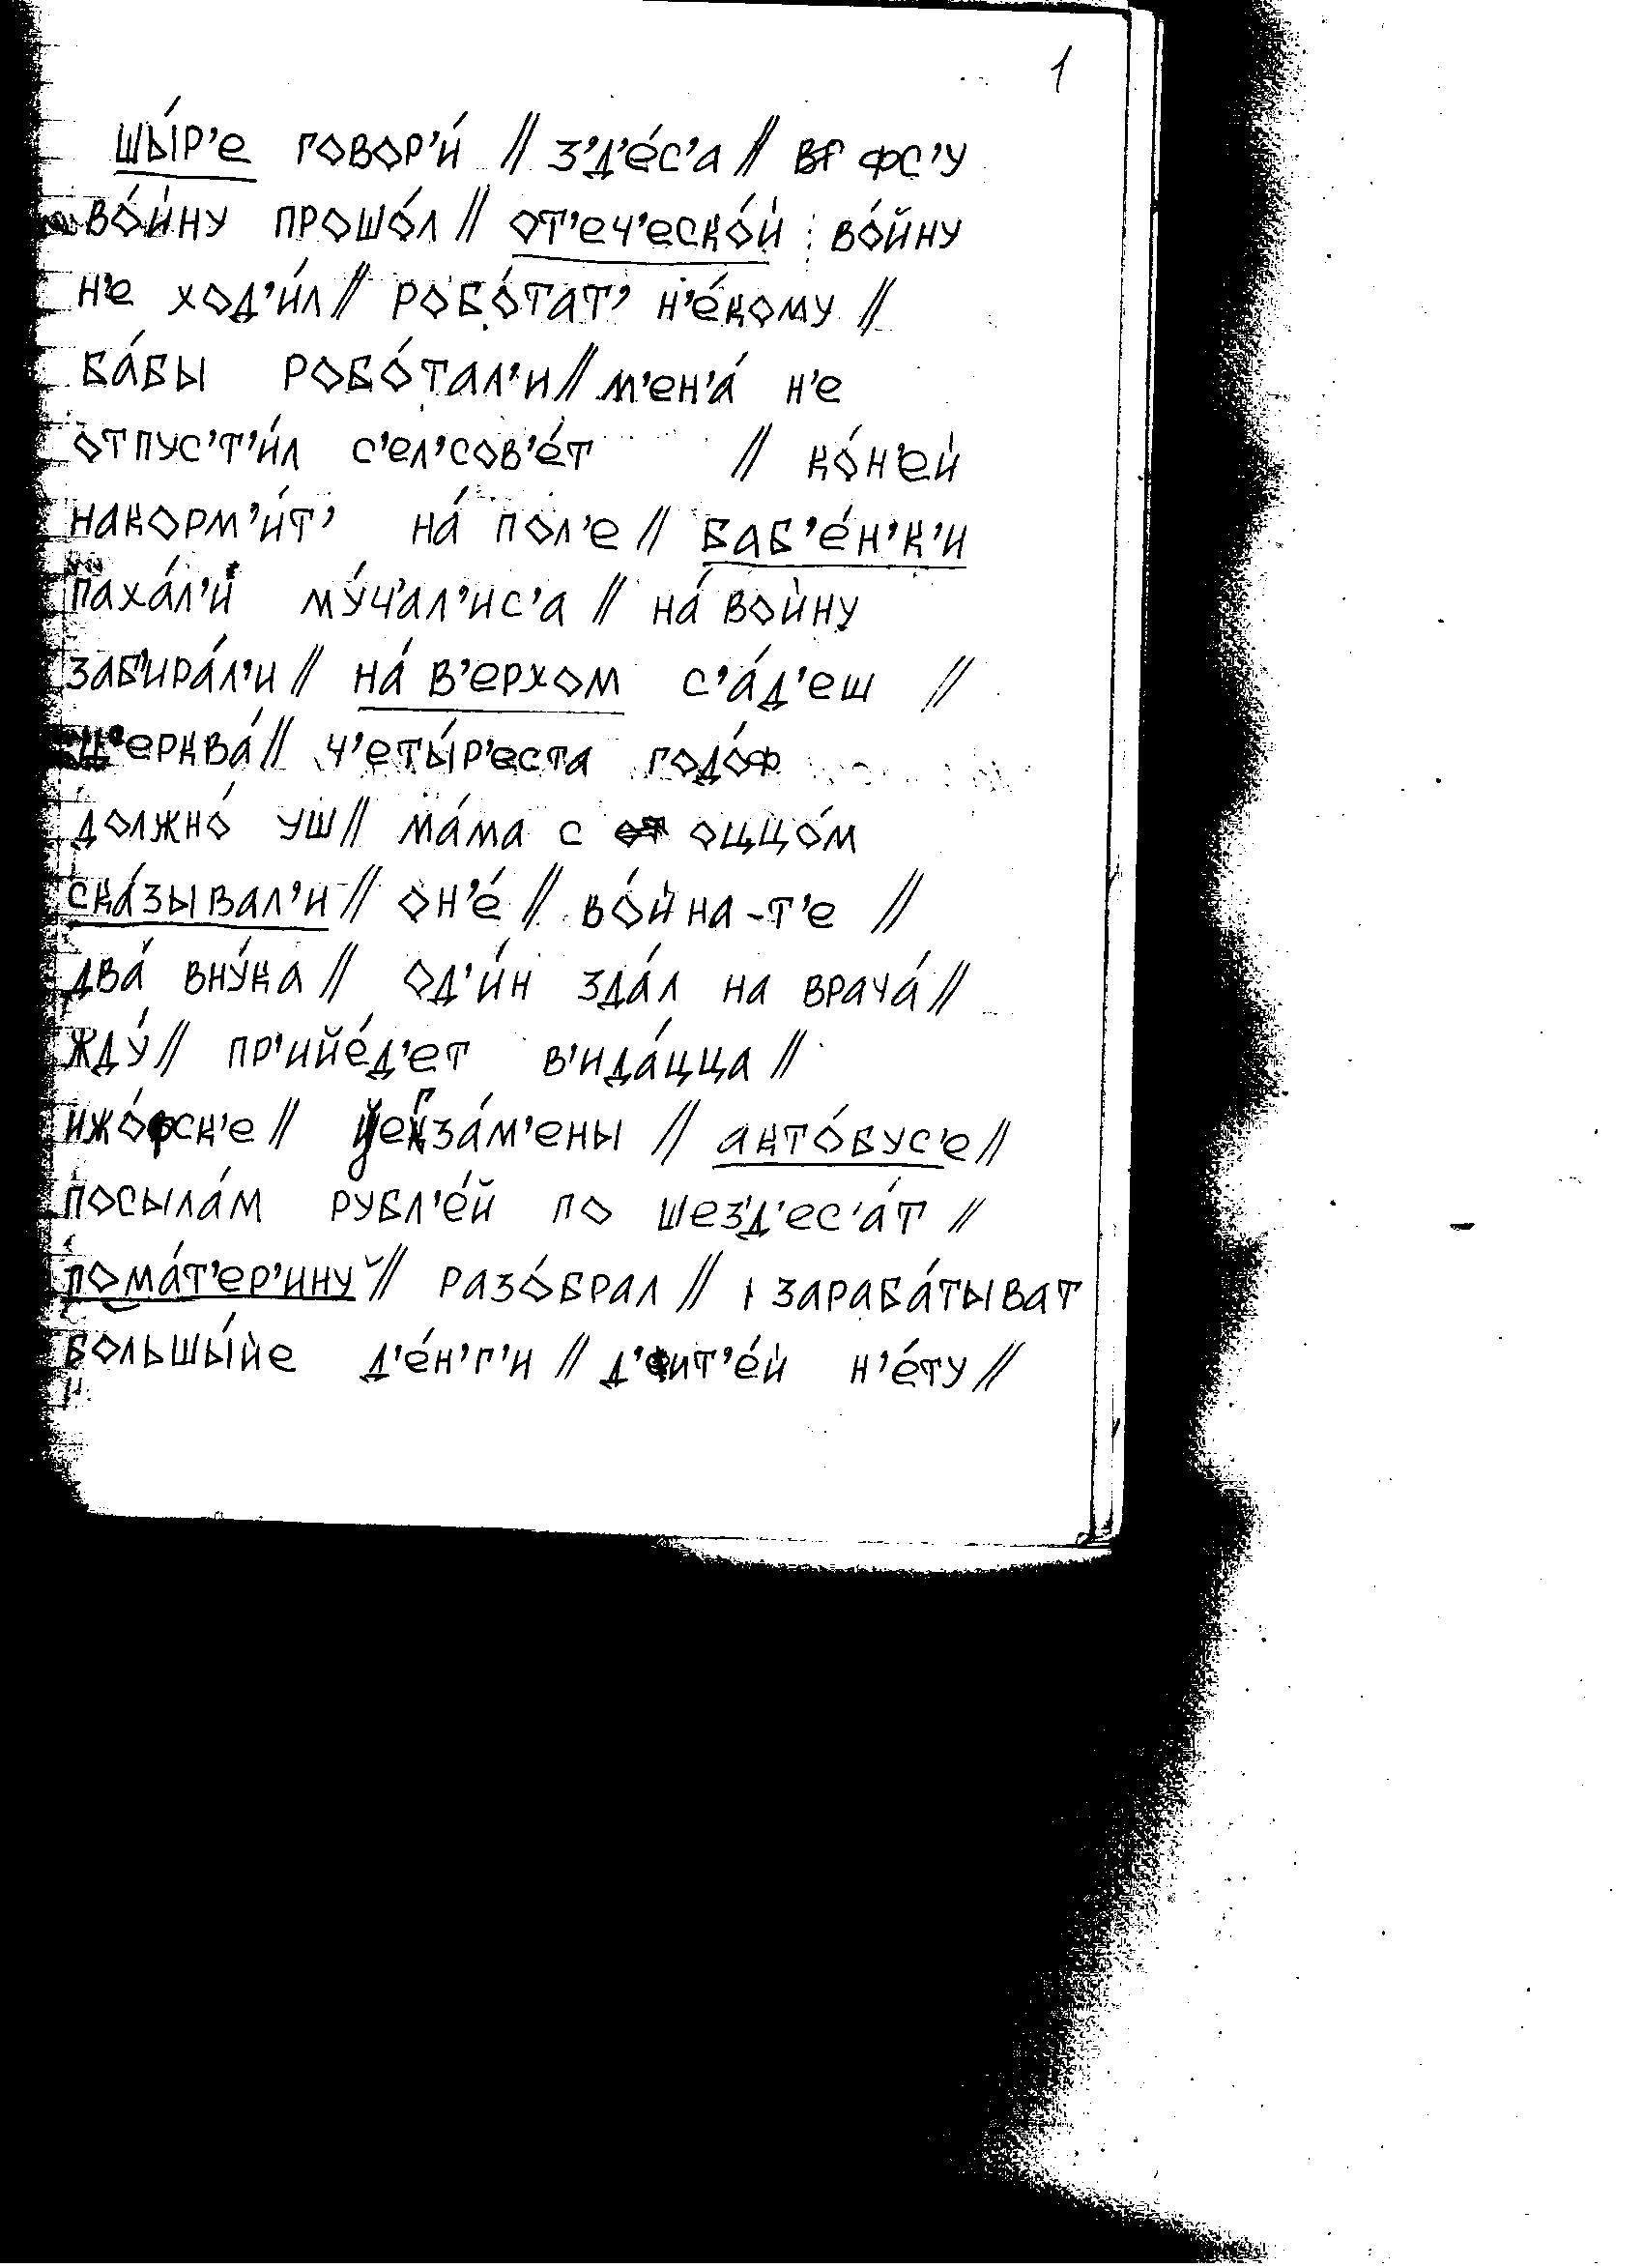 1
шы́р'е говор'и́ // з'д'е́с'а // вг фс'у
во́йну прошо́л // от'еч'еско́й во́йну
н'е ход'и́л // робо́тат' н'е́кому //
ба́бы робо́тал'и // м'ен'а́ н'е
отпус'т'и́л с'ел'сов'е́т // ко́н'ей
накорм'и́т' на́ пол'е // баб'е́н'к'и
паха́л'и му́ч'ал'ис'а // на́ войну
заб'ира́л'и // на́ в'ерхом с'а́д'еш //
ц'ерква́ // ч'еты́р'еста годо́ф
должно́ уш // ма́ма с оццо́м
ска́зывал'и // он'е́ // во́йна-т'е //
два́ вну́ка // од'и́н зда́л на врача́ //
жду́ // пр'ийе́д'ет в'ида́цца //
ижо́рск'е // за́м'ены // акто́бус'е //
посыла́м рубл'е́й по шез'д'ес'а́т //
пома́т'ер'ину // разо́брал // зараба́тыват
большы́йе д'е́н'г'и // д'ит'е́й н'е́ту //